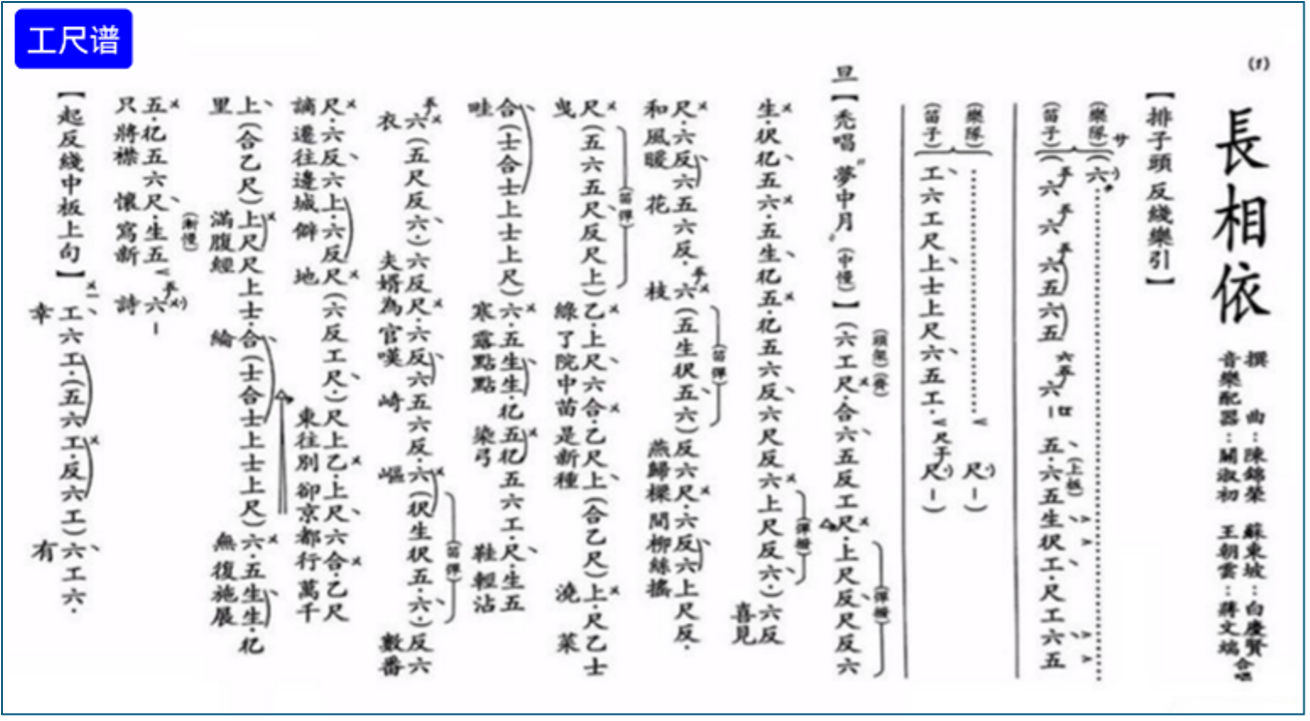 工尺谱
(1)
長相依
撰曲：陳錦榮 蘇東坡：白慶賢
音樂配器：關淑初 王朝雲：蔣文端 合唱
【排子頭 反綫樂引】
(樂隊) サ (六
(笛子) (六 六 六五六五 六五六 — 廿 五·六五生伬工·尺工六五
(上板)
(樂隊) 尺 — )
(笛子) 工六工尺上士上尺六五工·尺于尺 — )
(頭架)(齊) (彈撥)
旦【禿唱 "夢中月"(中慢)】(六工尺·合六五反工尺·上尺反尺反六
(彈撥)
生·伬仡五六·五生仡五·仡五六反六尺反六上尺反六·)六反
喜見
(笛彈)
尺·六反六五六反·六(五生伬五六)反六尺·六反六上尺反·
和風暖花枝 燕歸樑間柳絲搖
(笛彈)
尺(五六五尺反尺上)乙·上尺六合·乙尺上(合乙尺)上·尺乙士
曳 綠了院中苗是新種 澆菜
合(士合士上士上尺)六·五生生·仡五仡五六工·尺·生五
畦 寒露點點染弓鞋輕沾
(笛彈)
六(五尺反六·)六反尺·六反六五六反·六(伬生伬五·六·)反六
衣 夫婿為官嘆崎嶇 數番
尺·六反六上·六反尺(六反工尺·)尺上乙·上尺六合·乙尺
謫遷往邊城僻地 東往別卻京都行萬千
上(合乙尺)上尺尺上士·合(士合士上士上尺)六·五生生·仡
里 滿腹經綸 無復施展
(漸慢)
五·仡五六尺·生五六 —
只將襟懷寫新詩
【起反綫中板上句】工六工·(五六工·反六工)六工六·
幸 有